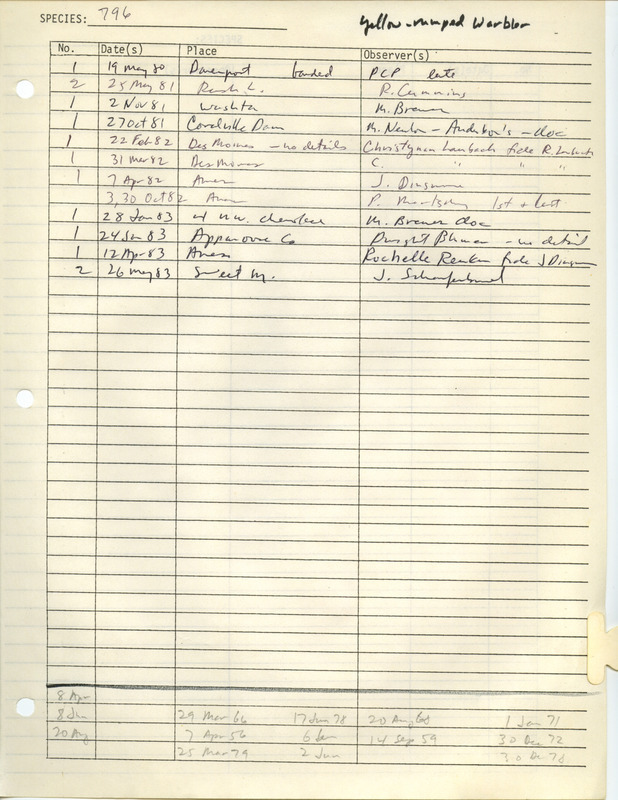 SPECIES: 796 Yellow-rumped Warbler
No. Date(s) Place Observer(s)
1 19 May 80 Davenport banded PCP late
2 25 May 81 Rush L. R. Cummins
1 2 Nov 81 Washta M. Brewer
1 27 Oct 81 Coralville Dam M. Newlon - Audubon's - doc
1 22 Feb 82 Des Moines - no details Laubach fide R. Laubach
1 31 Mar 82 Des Moines C. " "
1 7 Apr 82 Ames J. Dinsmore
3,30 Oct 82 Ames P. 1st + last
1 28 Jan 83 nw. Cherokee M. Brewer doc
1 24 Jan 83 Appanoose Co Dwight - no detail
1 12 Apr 83 Ames Rochelle Renken fide J Dinsmore
2 26 May 83 Sweet M. J. Schaufenbuel
8 Apr
8 Jun 29 Mar 66 17 Jun 78 20 Aug 60 1 Jan 71
20 Aug 7 Apr 56 6 Jun 14 Sep 59 30 Dec 72
25 Mar 79 2 Jun 30 De 78